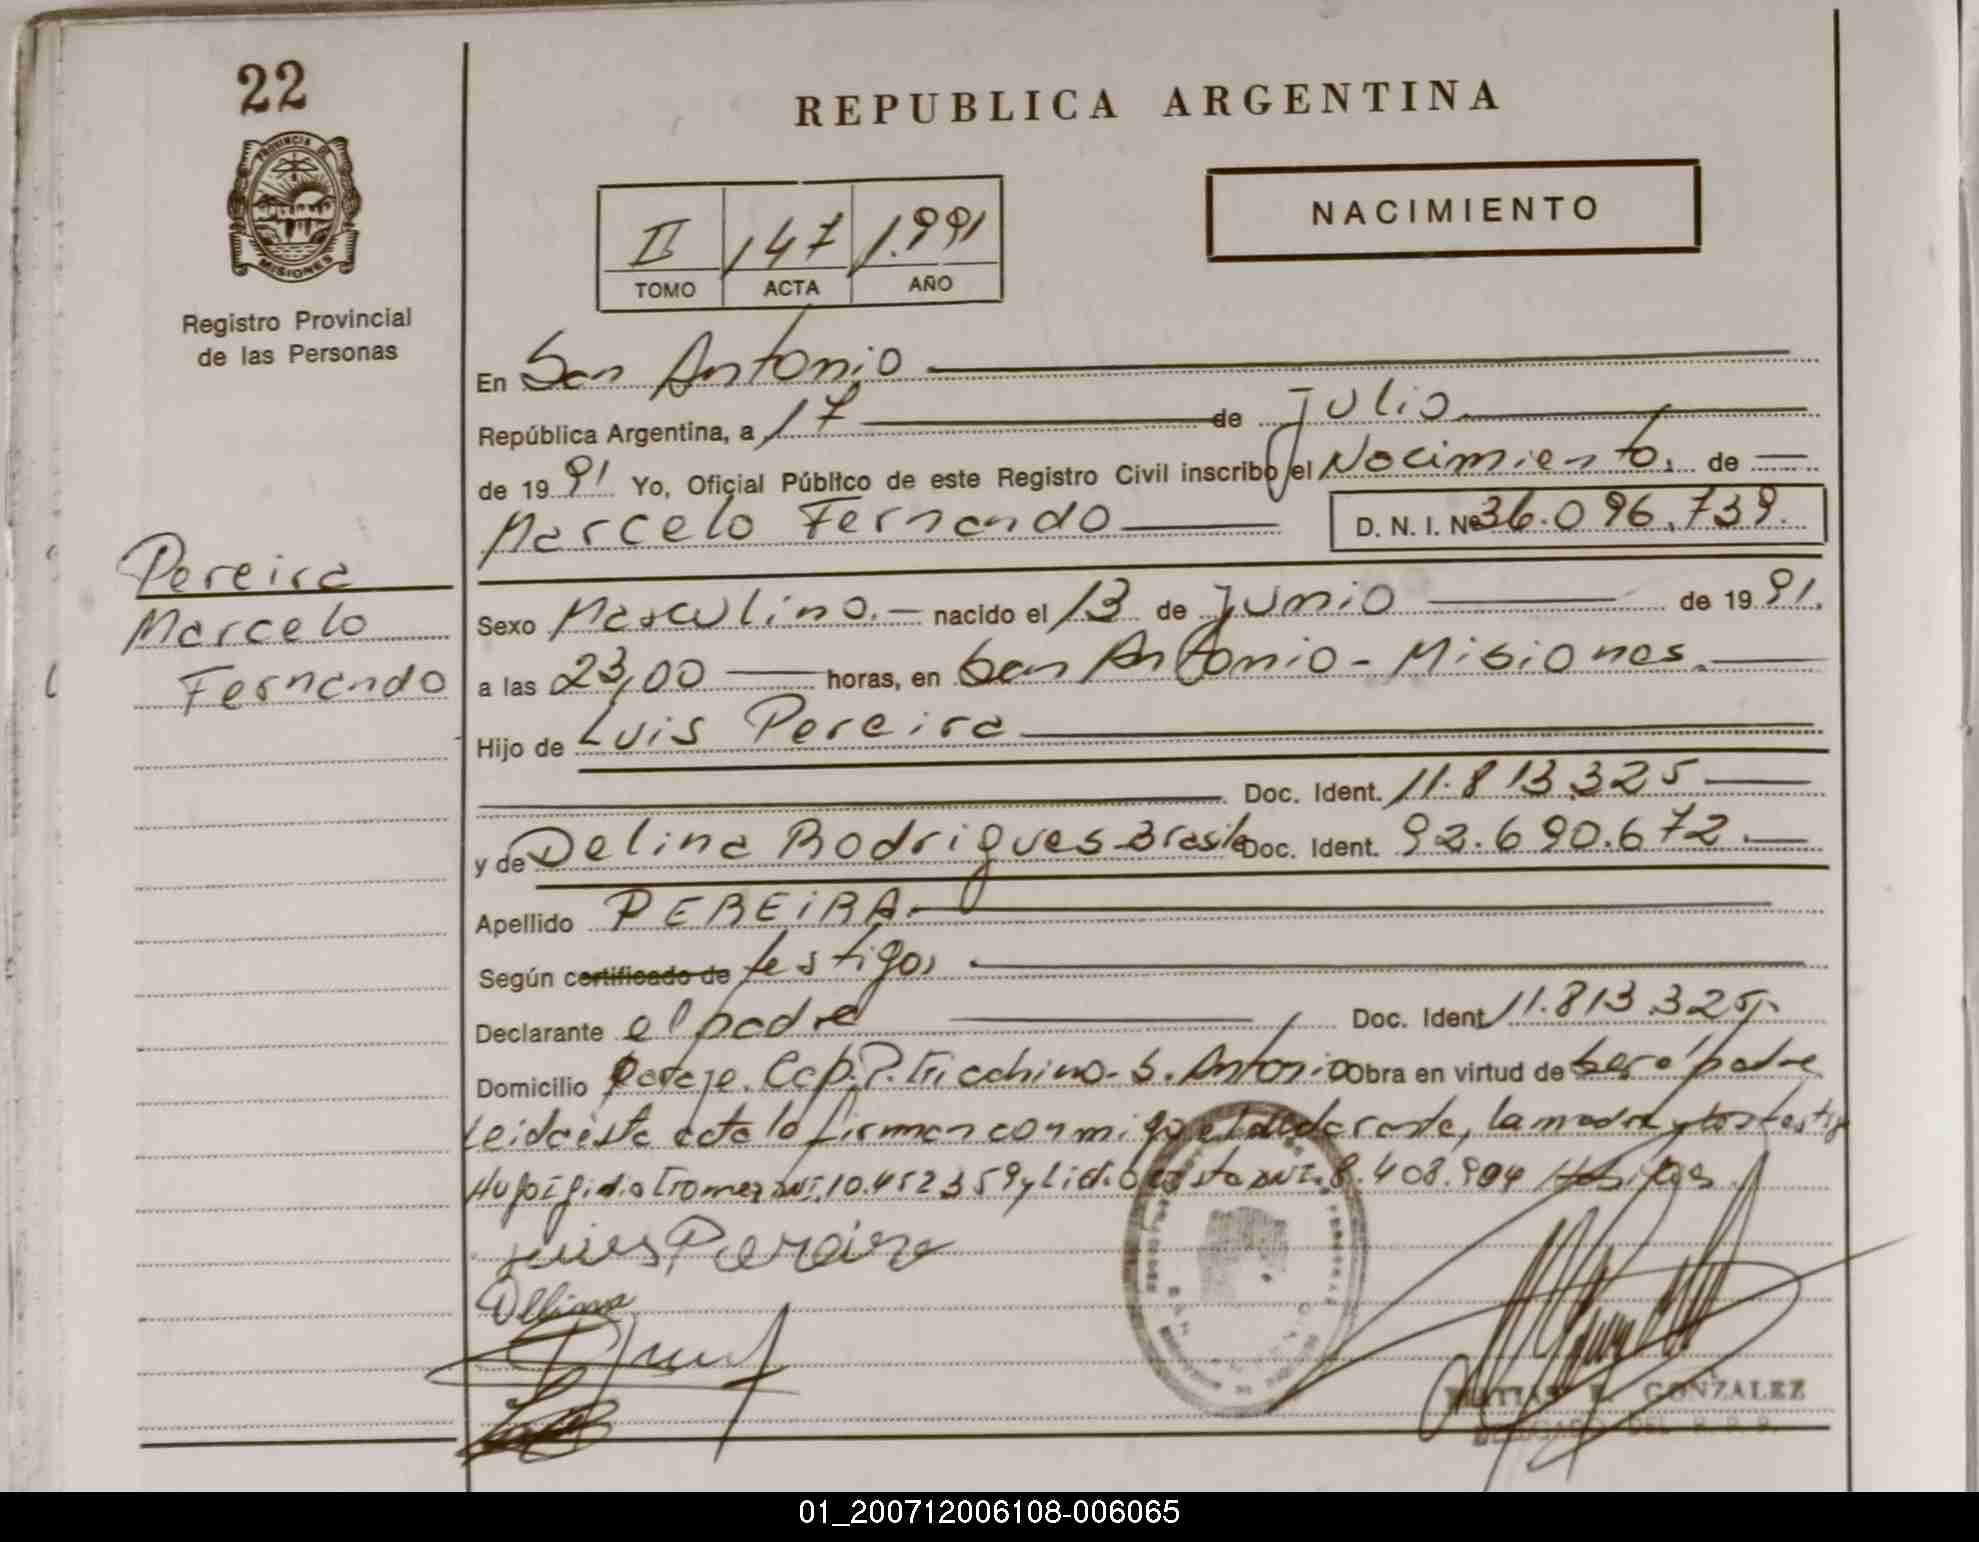 22
REPUBLICA ARGENTINA
PROVINCIA DE
MISIONES
Registro Provincial
de las Personas
II 147 1.991
TOMO ACTA AÑO
NACIMIENTO
En San Antonio
República Argentina, a 17 de Julio
de 1991 Yo, Oficial Público de este Registro Civil inscribo el Nacimiento. de
Marcelo Fernando D. N. I. Nº 36.096.739.
Pereira
Marcelo
Fernando
Sexo Masculino.- nacido el 13 de Junio de 1991.
a las 23,00 horas, en San Antonio - Misiones.
Hijo de Luis Pereira
Doc. Ident. 11.813.325
y de Delina Rodrigues Brasile Doc. Ident. 92.690.672.
Apellido PEREIRA.
Según certificado de testigos
Declarante el padre Doc. Ident 11.813.325
Domicilio Paraje. Cap. P. S. Antonio Obra en virtud de ser el padre
Leida esta acta la firman conmigo el declarante, la madre y los testig
Hugo 10.452359 y 8.408.904
Luis Pereira
Delina
GONZALEZ
DELEGADO DEL R. P. P.
01_200712006108-006065